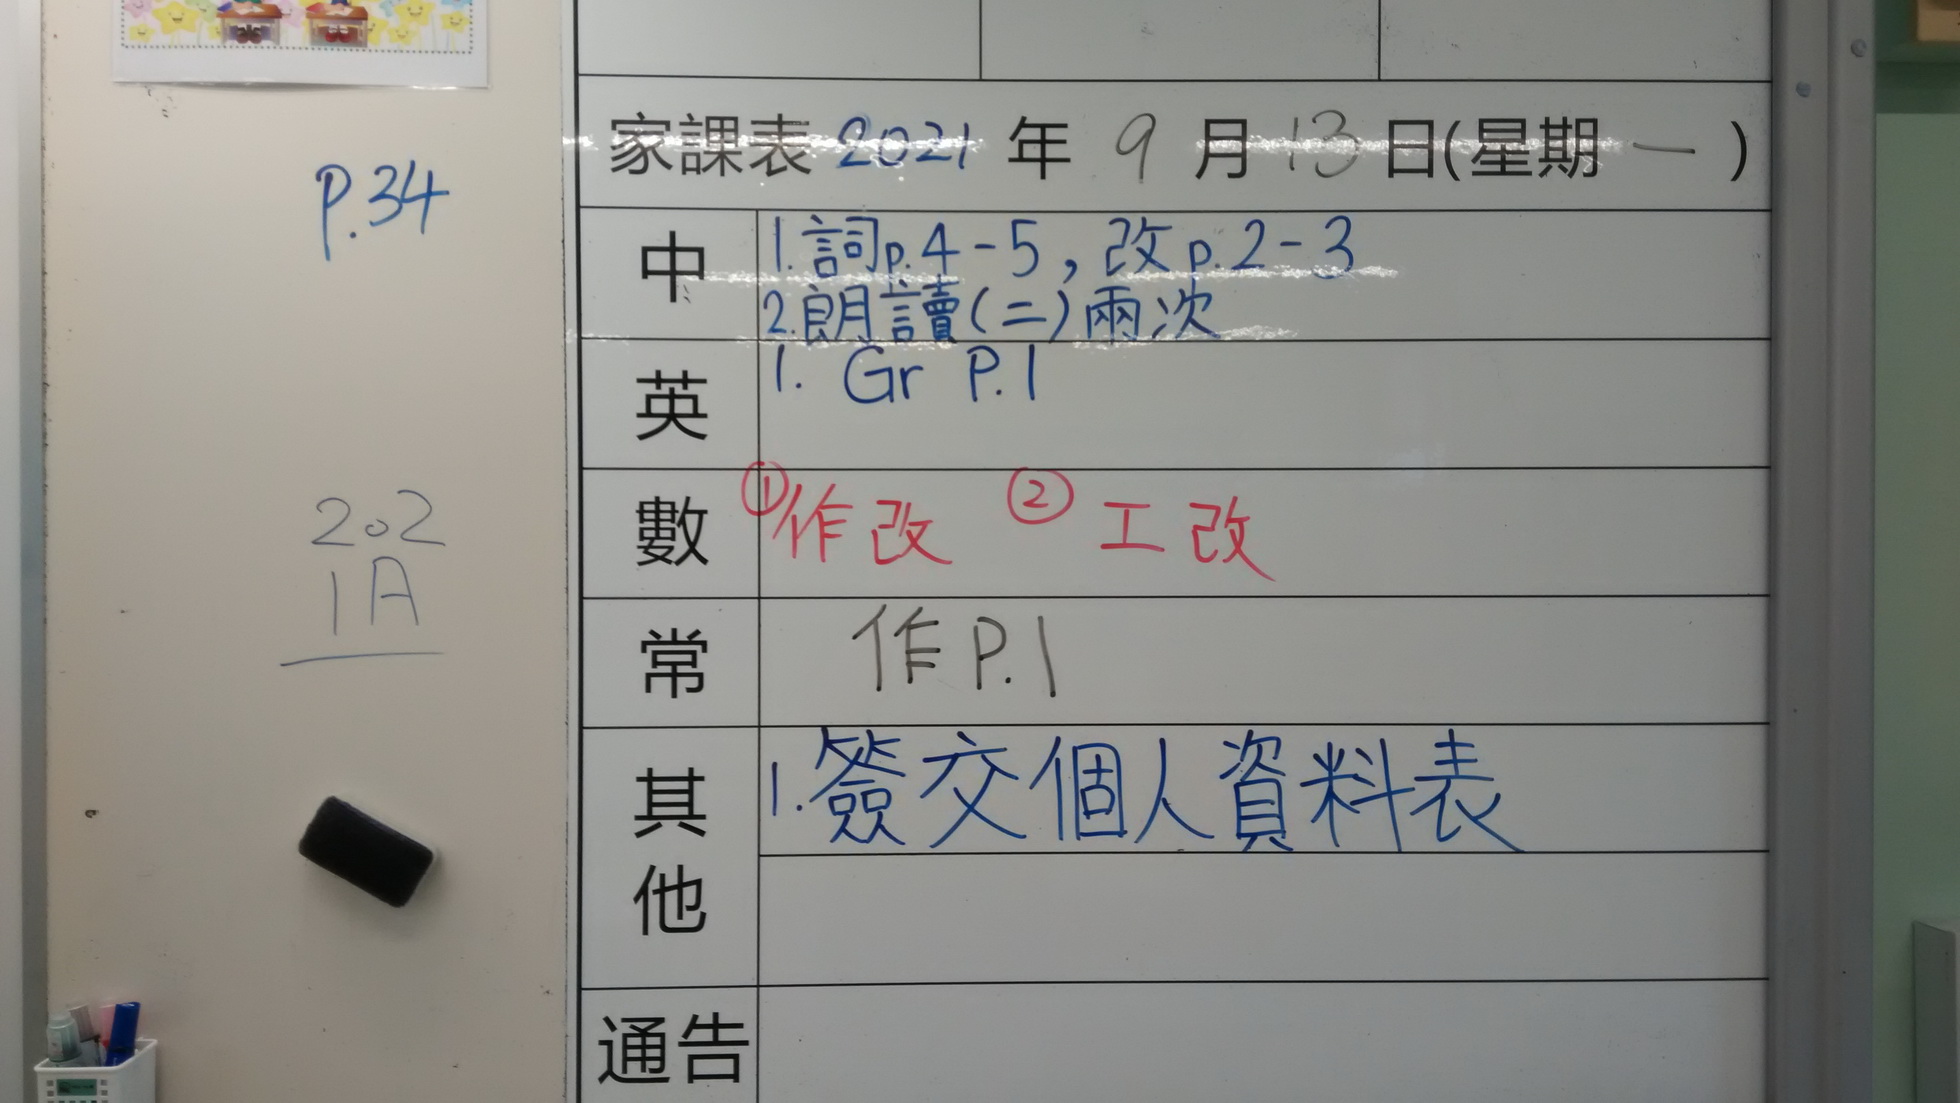 P.34
202
1A
家課表 2021 年 9 月 13 日(星期 一 )
中
1.詞p.4-5,改p.2-3
2.朗讀(二)兩次
英
1. Gr P.1
數
①作改 ② 工改
常
作P.1
其他
1.簽交個人資料表
通告